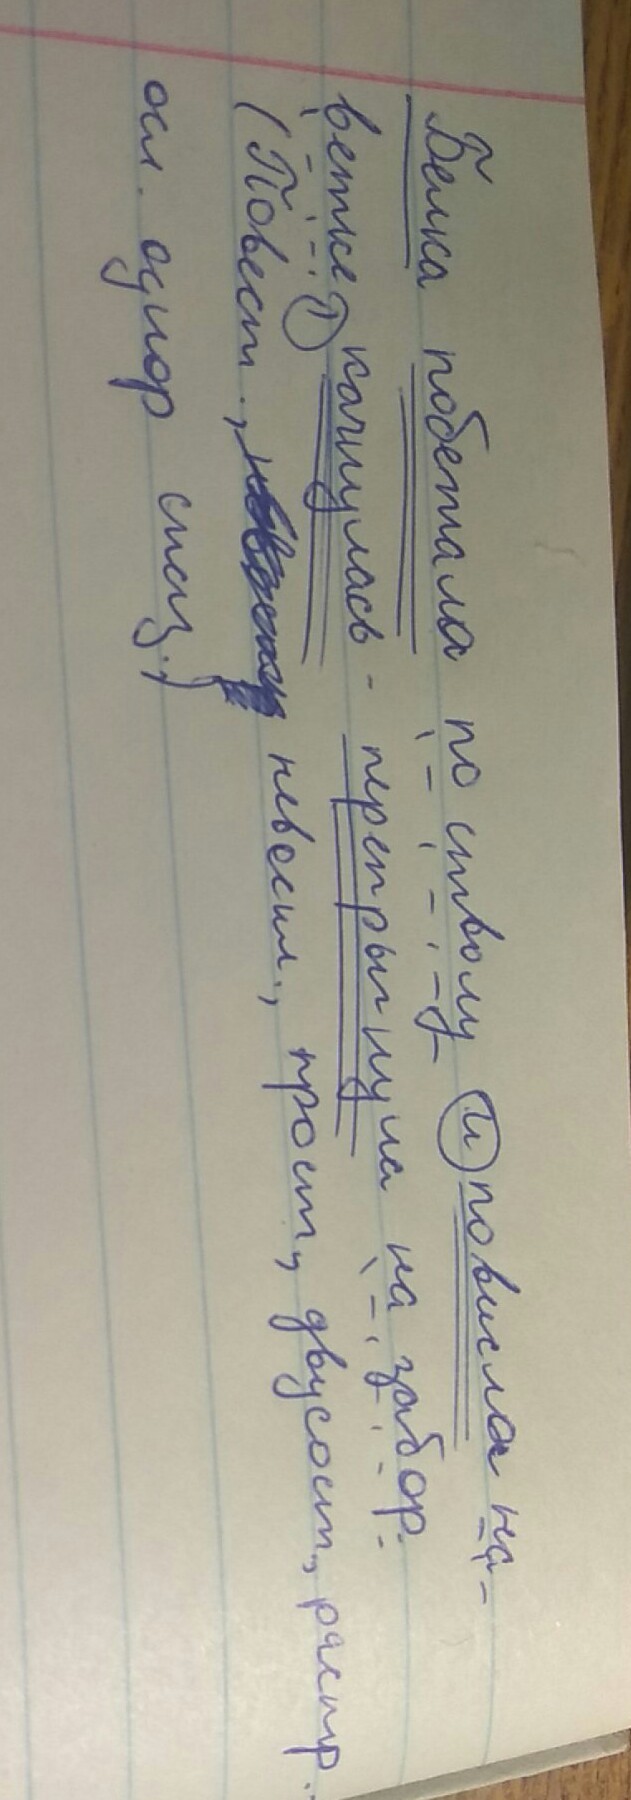 Белка побетала по стволу и повисла на
ветке, качнулась - перепрыгнула на забор.
(Повест., невоскл., прост, двусост, распр.,
осл. однор сказ.)